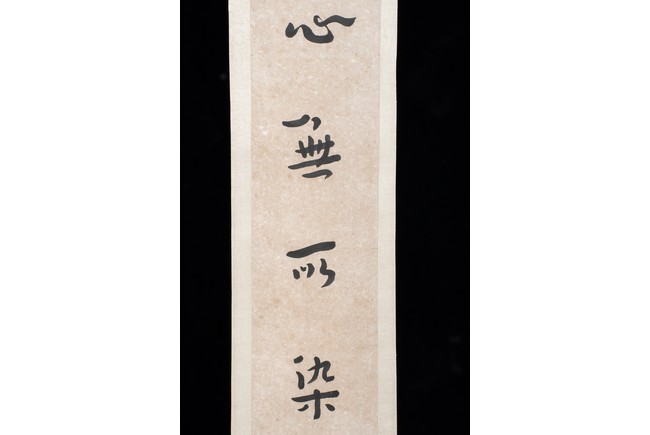 心無所染